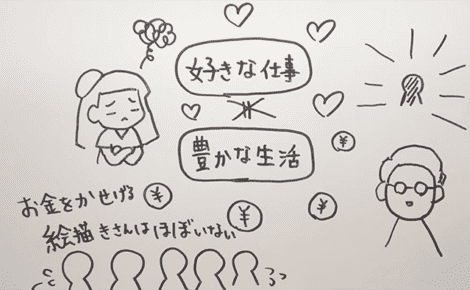 好きな仕事
≠
豊かな生活
¥
お金をかせげる ¥
¥ ¥
絵描きさんはほぼいない